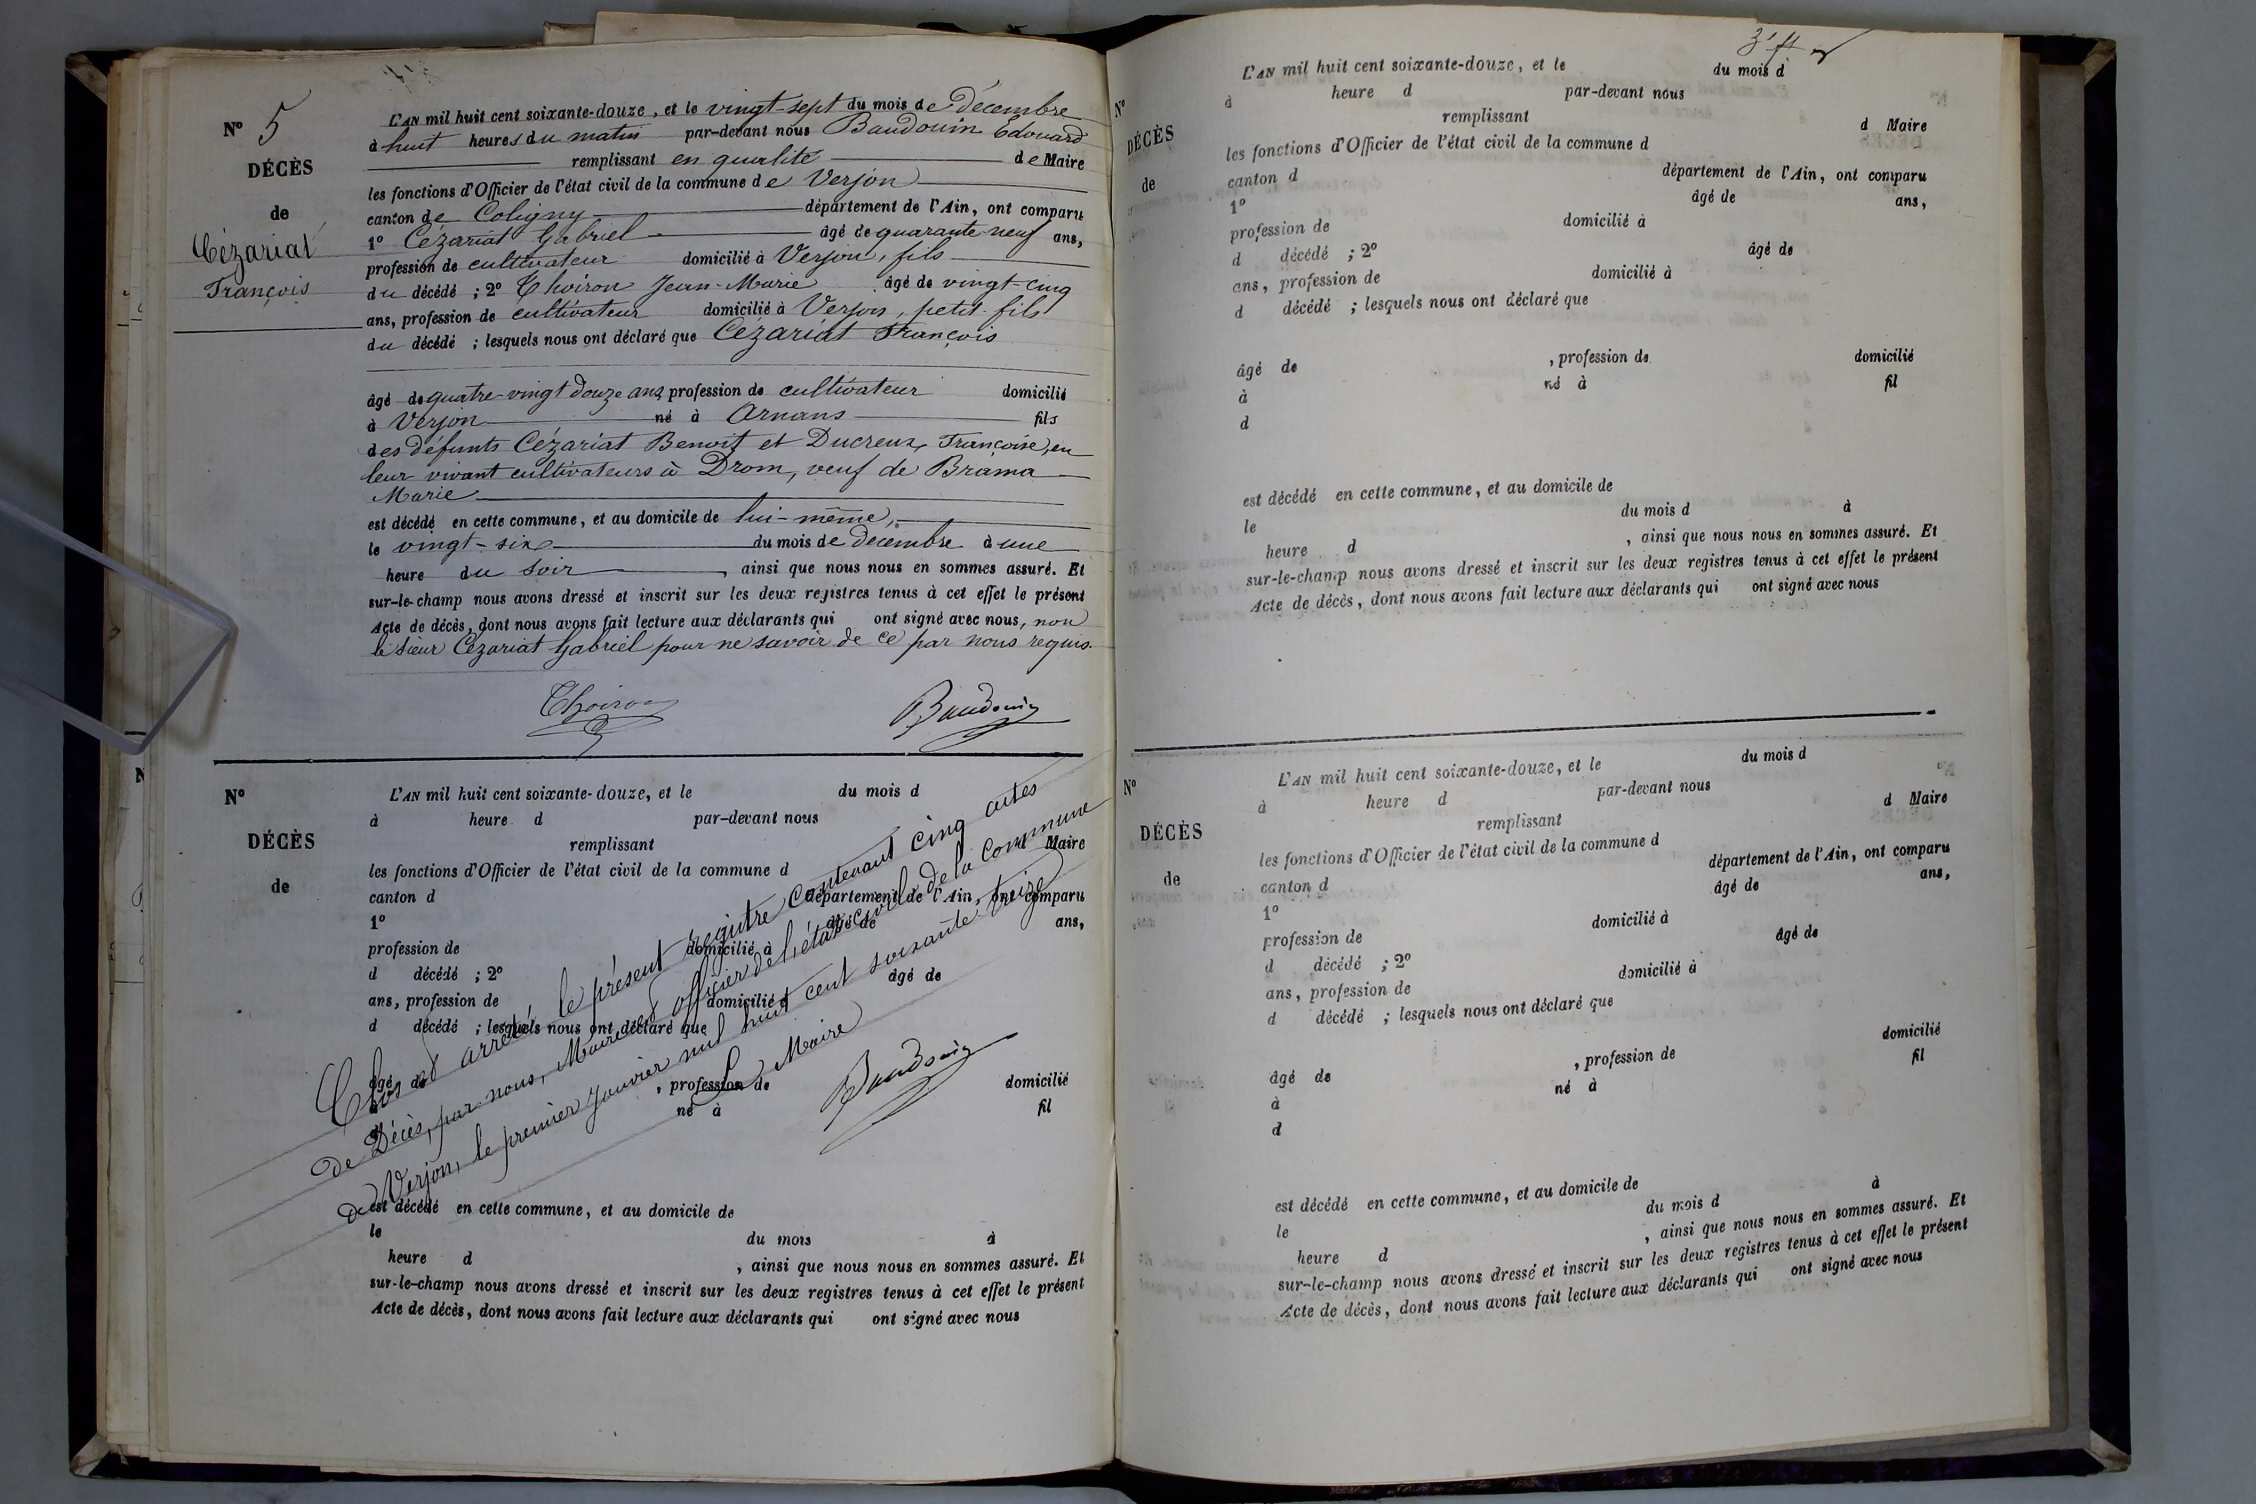 N° 5
DÉCÈS
de
Cézariat
François
L'AN mil huit cent soixante-douze, et le vingt-sept du mois de Décembre
à huit heures du matin par-devant nous Baudouin Edouard
remplissant en qualité de Maire
les fonctions d'Officier de l'état civil de la commune de Verjon
canton de Coligny département de l'Ain, ont comparu
1° Cézariat Gabriel âgé de quarante neuf ans,
profession de cultivateur domicilié à Verjon, fils
du décédé ; 2° Thoiron Jean-Marie âgé de vingt-cinq
ans, profession de cultivateur domicilié à Verjon, petit-fils
du décédé ; lesquels nous ont déclaré que Cézariat François
âgé de quatre-vingt douze ans profession de cultivateur domicilié
à Verjon né à Arnans fils
des défunts Cézariat Benoit et Ducreux Françoise, en
leur vivant cultivateurs à Drom, veuf de Brama
Marie
est décédé en cette commune, et au domicile de lui-même,
le vingt-six du mois de décembre à une
heure du soir, ainsi que nous nous en sommes assuré. Et
sur-le-champ nous avons dressé et inscrit sur les deux registres tenus à cet effet le présent
Acte de décès, dont nous avons fait lecture aux déclarants qui ont signé avec nous, non
le sieur Cézariat Gabriel pour ne savoir de ce par nous requis.
Thoiron Baudouin
N°
DÉCÈS
de
L'AN mil huit cent soixante-douze, et le du mois d
à heure d par-devant nous
remplissant d Maire
les fonctions d'Officier de l'état civil de la commune d
canton d département de l'Ain, ont comparu
1° âgé de ans,
profession de domicilié à
d décédé ; 2° âgé de
ans, profession de domicilié à
d décédé ; lesquels nous ont déclaré que
âgé de , profession de domicilié
à né à fil
d
est décédé en cette commune, et au domicile de
le du mois à
heure d , ainsi que nous nous en sommes assuré. Et
sur-le-champ nous avons dressé et inscrit sur les deux registres tenus à cet effet le présent
Acte de décès, dont nous avons fait lecture aux déclarants qui ont signé avec nous
Clos et arrêté le présent registre contenant cinq actes
de Décès, par nous, Maire et officier de l'état civil de la Commune
de Verjon, le premier janvier mil huit cent soixante treize
Le Maire
Baudouin
N°
DÉCÈS
de
L'AN mil huit cent soixante-douze, et le du mois d
à heure d par-devant nous
remplissant d Maire
les fonctions d'Officier de l'état civil de la commune d
canton d département de l'Ain, ont comparu
1° âgé de ans,
profession de domicilié à
d décédé ; 2° âgé de
ans, profession de domicilié à
d décédé ; lesquels nous ont déclaré que
âgé de , profession de domicilié
à né à fil
d
est décédé en cette commune, et au domicile de
le du mois d à
heure d , ainsi que nous nous en sommes assuré. Et
sur-le-champ nous avons dressé et inscrit sur les deux registres tenus à cet effet le présent
Acte de décès, dont nous avons fait lecture aux déclarants qui ont signé avec nous
N°
DÉCÈS
de
L'AN mil huit cent soixante-douze, et le du mois d
à heure d par-devant nous
remplissant d Maire
les fonctions d'Officier de l'état civil de la commune d
canton d département de l'Ain, ont comparu
1° âgé de ans,
profession de domicilié à
d décédé ; 2° âgé de
ans, profession de domicilié à
d décédé ; lesquels nous ont déclaré que
âgé de , profession de domicilié
à né à fil
d
est décédé en cette commune, et au domicile de
le du mois d à
heure d , ainsi que nous nous en sommes assuré. Et
sur-le-champ nous avons dressé et inscrit sur les deux registres tenus à cet effet le présent
Acte de décès, dont nous avons fait lecture aux déclarants qui ont signé avec nous